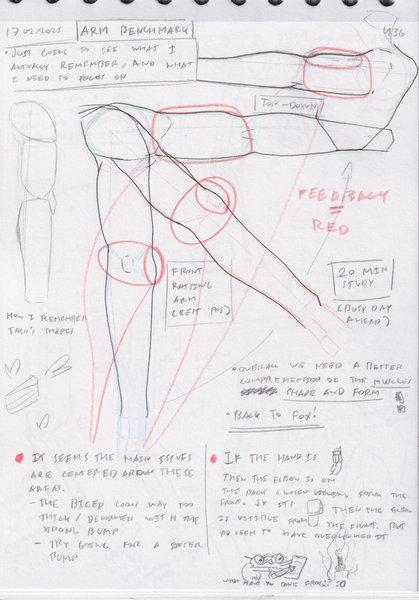 17.02.2025 ARM BENCHMARK
1/36
• JUST GOING TO SEE WHAT I
ACTUALLY REMEMBER, AND WHAT
I NEED TO FOCUS ON
TOP-DOWN
FEEDBACK
=
RED
FRONT
RAISING
ARM
(REST POS)
20 MIN
STUDY
(BUSY DAY
AHEAD)
HOW I REMEMBER
TACO'S SHAPES
• OVERALL WE NEED A BETTER
COMPREHENSION OF THE MUSCLES
SHAPE AND FORM
• BACK TO FOX!
• IT SEEMS THE MAIN ISSUES
ARE CENTERED AROUND THESE
AREAS.
- THE BICEP LOOKS WAY TOO
THICK / DEFORMED WITH THE
STRONG BUMP
- TRY GOING FOR A SOFTER
BUMP
• IF THE HAND IS
THEN THE ELBOW IS ON
THE BACK (WHEN VIEWING FROM THE
FRONT. IF IT'S THEN THE ELBOW
IS VISIBLE FROM THE FRONT. BUT
YOU SEEM TO HAVE OVERDONE IT
WHAT HAVE YOU DONE